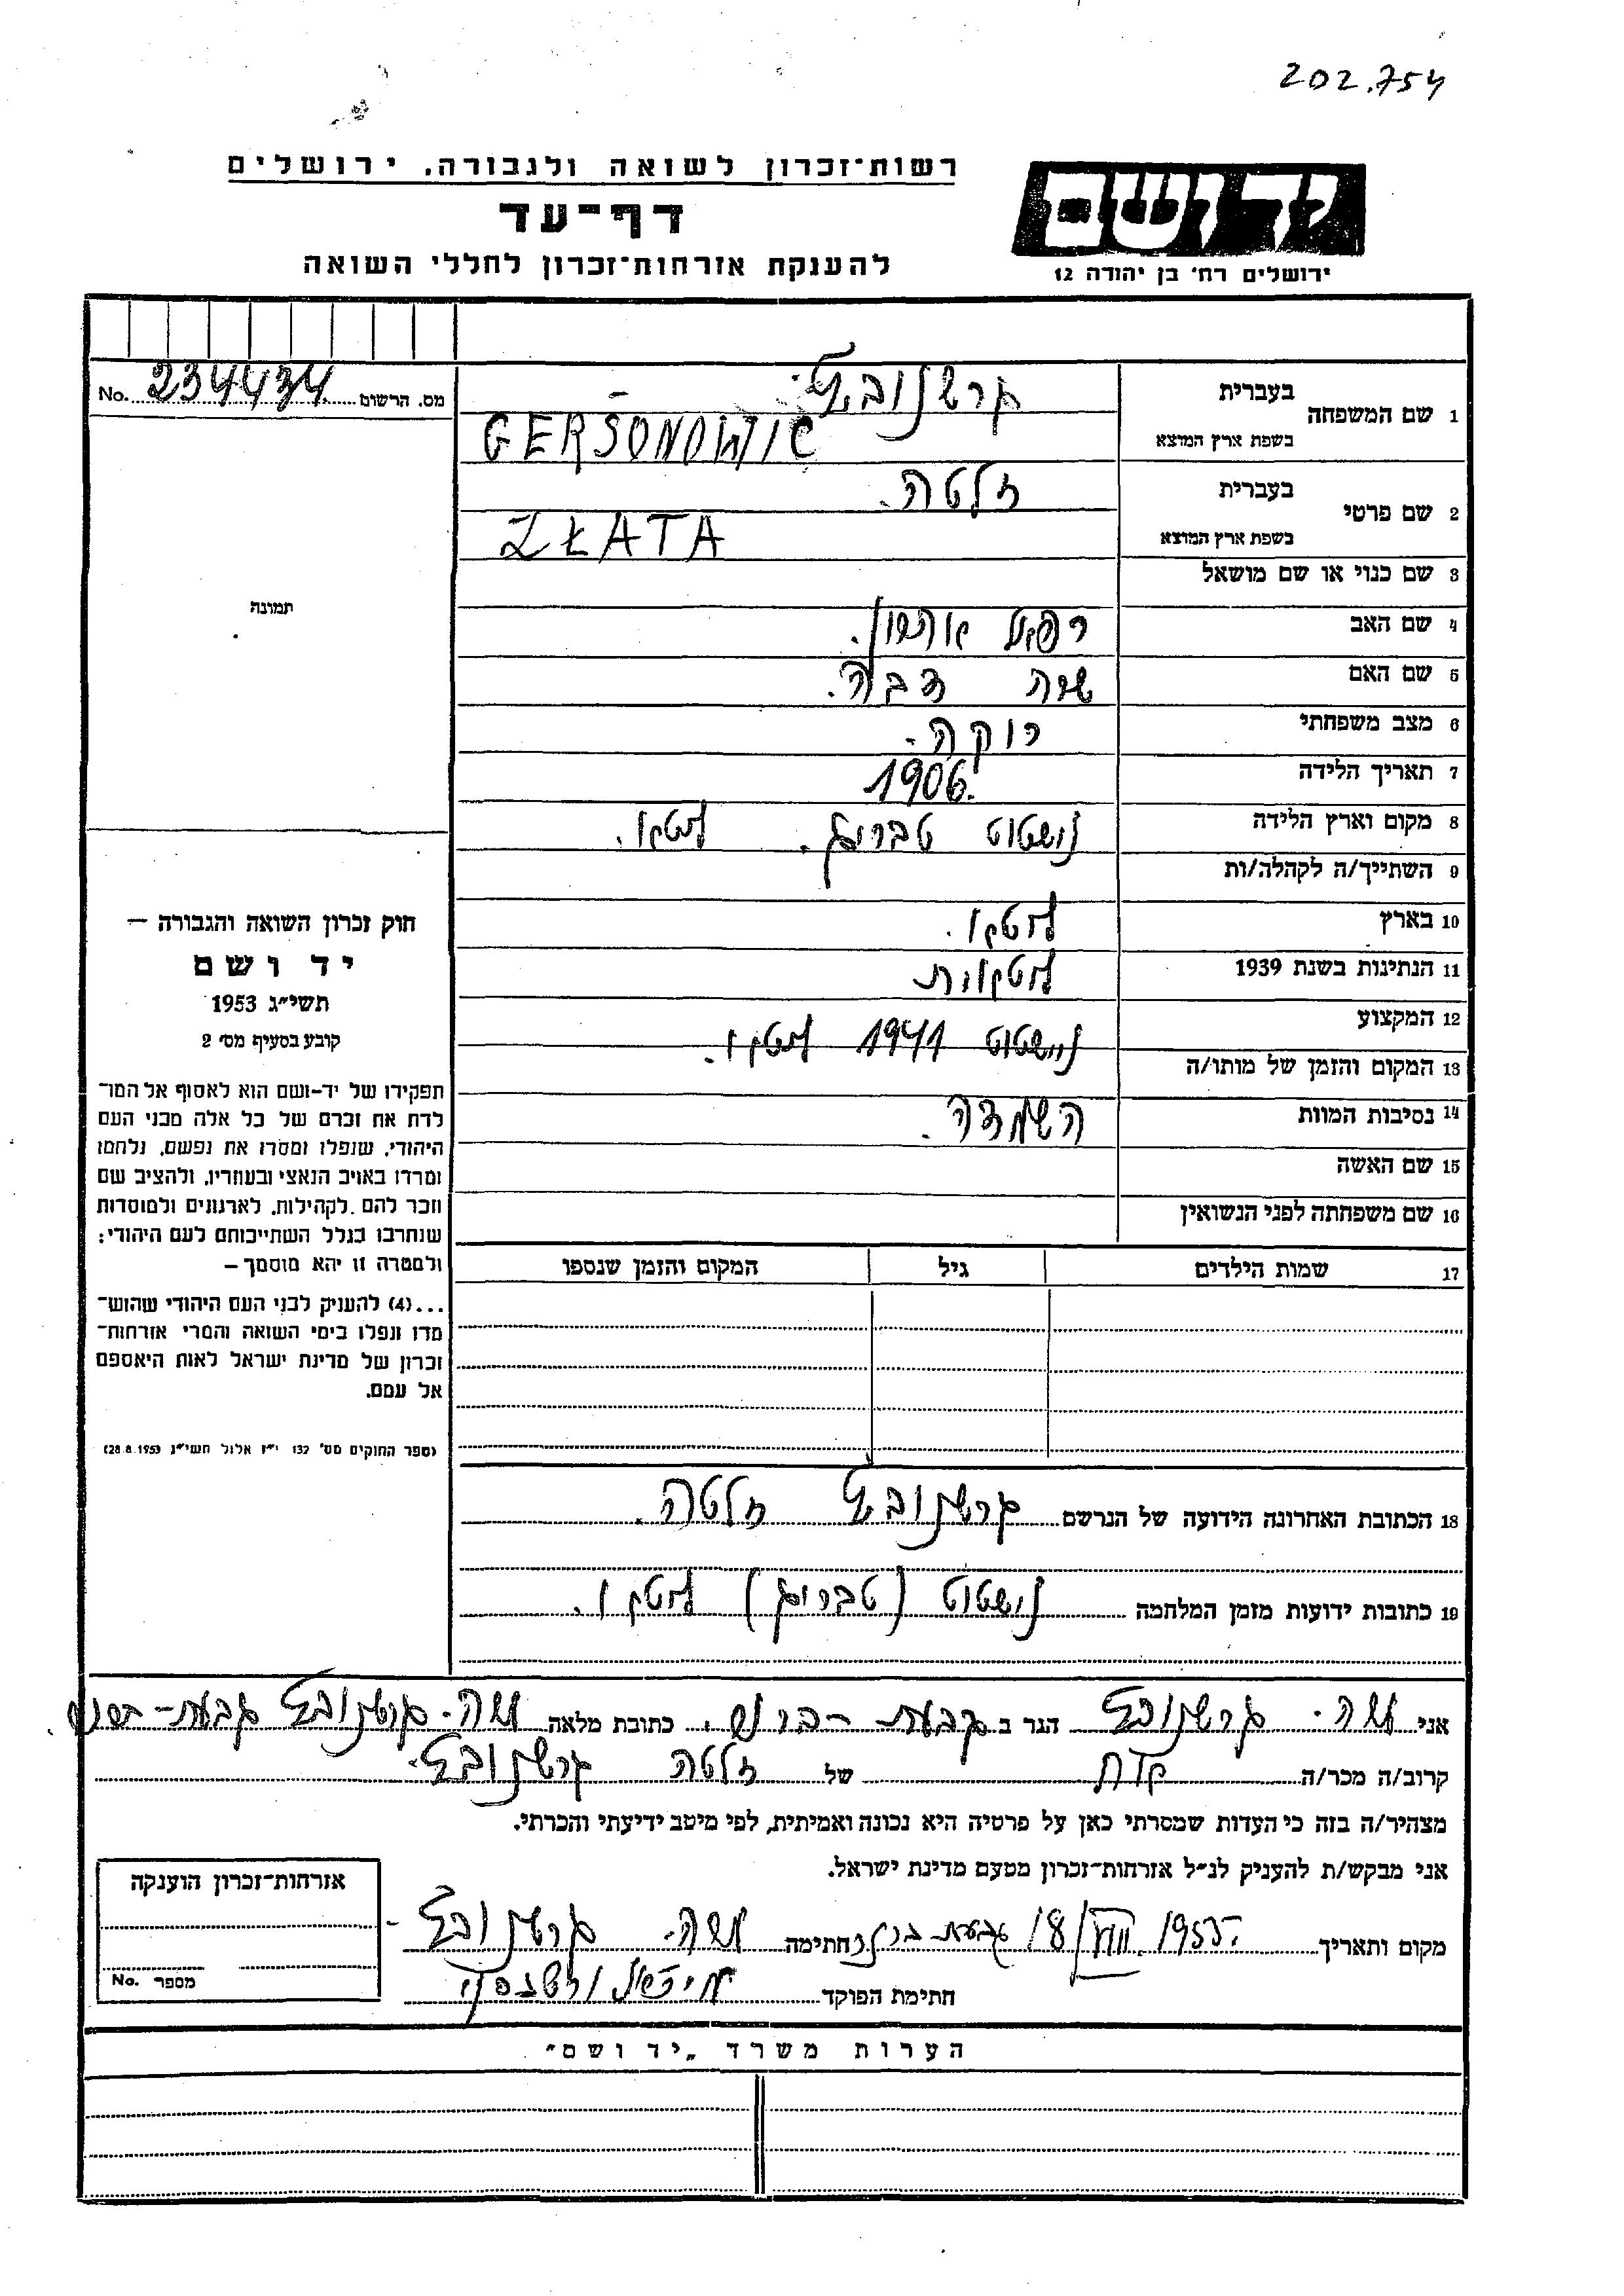 202.754
רשות־זכרון לשואה ולגבורה, ירושלים
יד ושם
דף־עד
ירושלים רח' בן יהודה 12
להענקת אזרחות־זכרון לחללי השואה
מס. הרשום 234434 No.
בעברית גרשנוביץ.
1 שם המשפחה
בשפת ארץ המוצא GERSONOWIC
בעברית זלטה.
2 שם פרטי
בשפת ארץ המוצא ZŁATA
3 שם כנוי או שם מושאל
תמונה
4 שם האב רפאל
5 שם האם שרה
6 מצב משפחתי רוקה.
7 תאריך הלידה 1906.
8 מקום וארץ הלידה נישטוט טבריג. ליטא.
9 השתייך/ה לקהלה/ות
10 בארץ
11 הנתינות בשנת 1939
12 המקצוע
13 המקום והזמן של מותו/ה נישטוט 1941
14 נסיבות המוות השמדה.
15 שם האשה
16 שם משפחתה לפני הנשואין
חוק זכרון השואה והגבורה —
יד ושם
תשי"ג 1953
קובע בסעיף מס' 2
תפקידו של יד-ושם הוא לאסוף אל המו־
לדת את זכרם של כל אלה מבני העם
היהודי, שנפלו ומסרו את נפשם, נלחמו
ומרדו באויב הנאצי ובעוזריו, ולהציב שם
וזכר להם, לקהילות, לארגונים ולמוסדות
שנחרבו בגלל השתייכותם לעם היהודי;
ולמטרה זו יהא מוסמך —
...(4) להעניק לבני העם היהודי שהוש־
מדו ונפלו בימי השואה והמרי אזרחות־
זכרון של מדינת ישראל לאות היאספם
אל עמם.
(ספר החוקים מס' 132 י"ז אלול תשי"ג 28.8.1953)
17 שמות הילדים גיל המקום והזמן שנספו
18 הכתובת האחרונה הידועה של הנרשם גרשנוביץ זלטה.
19 כתובות ידועות מזמן המלחמה נישטוט (טבריג)
אני משה. גרשנוביץ הגר ב גבעת-ברנר. כתובת מלאה משה. גרשנוביץ גבעת-ברנר.
קרוב/ה מכר/ה של זלטה גרשנוביץ.
מצהיר/ה בזה כי העדות שמסרתי כאן על פרטיה היא נכונה ואמיתית, לפי מיטב ידיעתי והכרתי.
אני מבקש/ת להעניק לנ"ל אזרחות־זכרון מטעם מדינת ישראל.
מקום ותאריך 1955. VIII/18 גבעת ברנר חתימה משה. גרשנוביץ
חתימת הפוקד
אזרחות־זכרון הוענקה
מספר No.
הערות משרד „יד ושם"